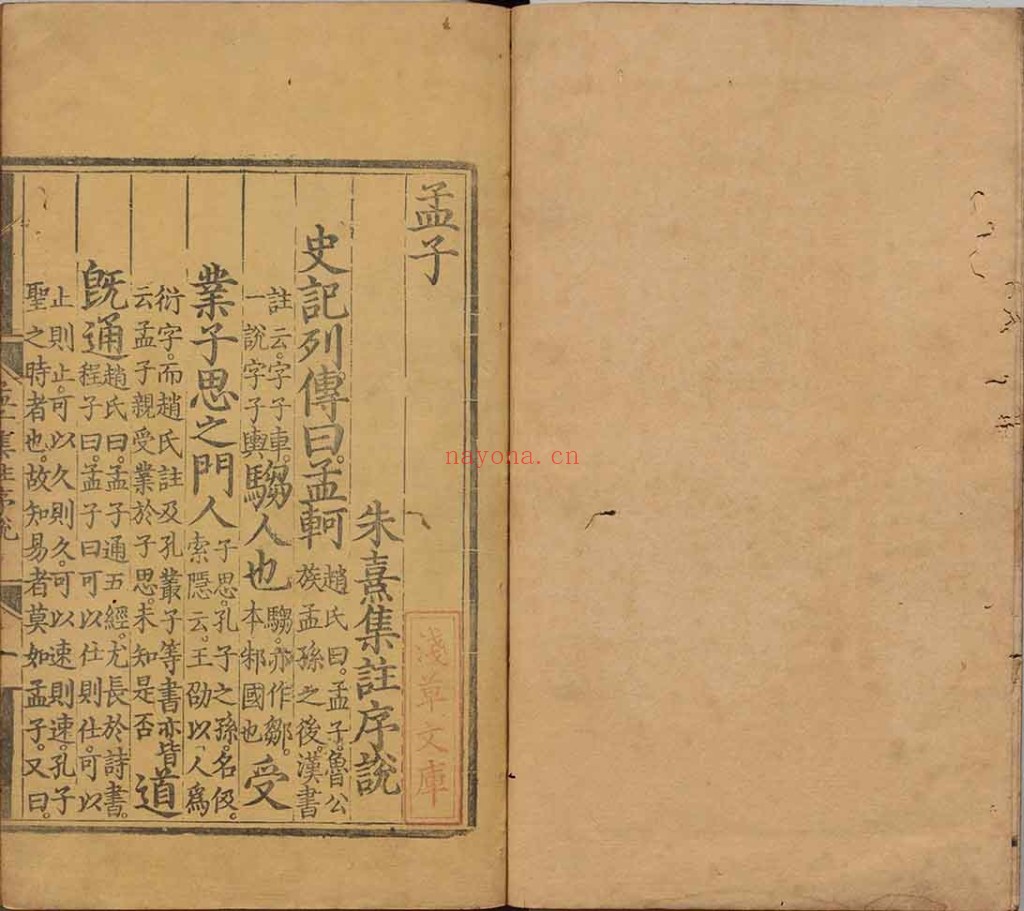 孟子
朱熹集註序說
史記列傳曰。孟軻趙氏曰。孟子。魯公族孟孫之後。漢書
註云。字子車。一說字子輿騶人也騶。亦作鄒。本邾國也受
業子思之門人子思。孔子之孫。名伋。索隱云。王劭以人爲
衍字。而趙氏註及孔叢子等書亦皆云孟子親受業於子思。未知是否道
旣通趙氏曰。孟子通五經。尤長於詩書。程子曰。孟子曰可以仕則仕。可以
止則止。可以久則久。可以速則速。孔子聖之時者也。故知易者莫如孟子。又曰。
淺草文庫
nayona.cn